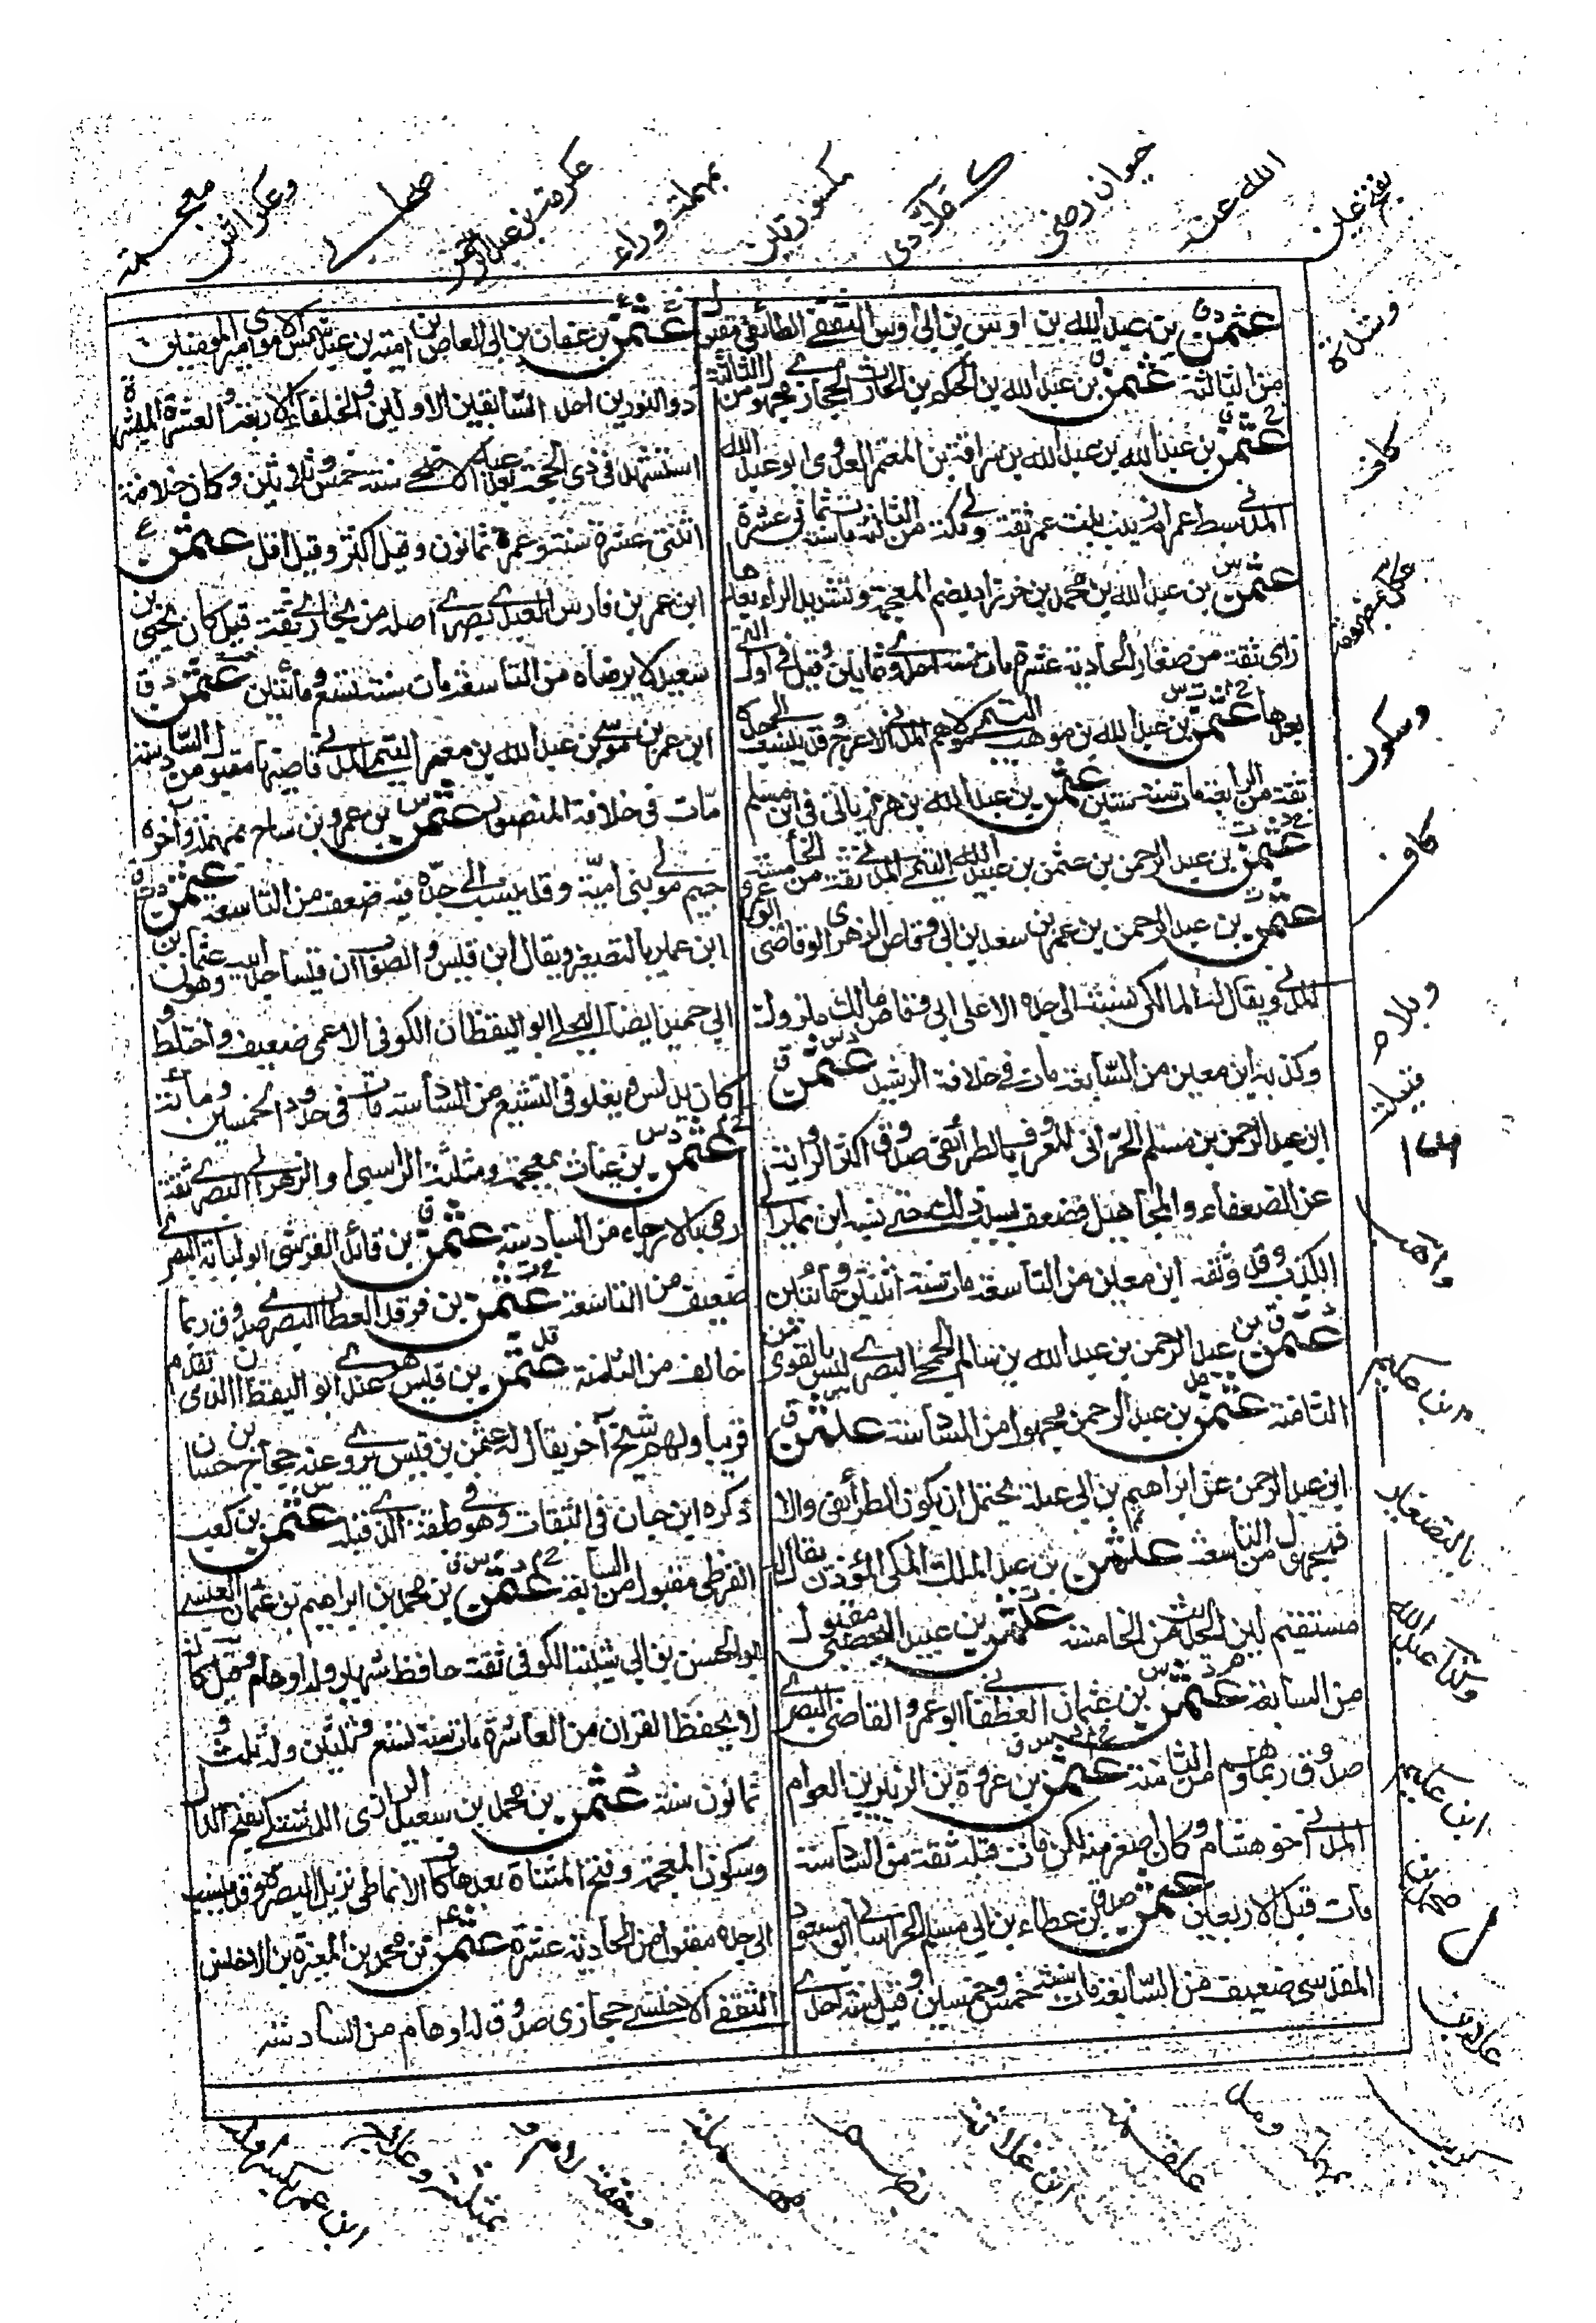 عثمن بن عبد الله بن اوس بن ابى اوس الثقفے الطائفى مقبول
من الثالثة عثمن بن عبد الله بن الحكم بن الحارث الحجازے مجهول من الثالثة
عثمن بن عبد الله بن عبد الله بن سراقة بن المعتمر العدوى ابو عبد الله
المدنے سبط عمر امه زينب بنت عمر ثقة ولے مكة من الثالثة مات سنة ثمانى عشرة
عثمن بن عبد الله بن محمد بن خرزاد بضم المعجمة وتشديد الراء بعدها
زاى ثقة من صغار الحادية عشرة مات سنة احدى وثمانين وقيل فى اول التى
بعدها عثمن بن عبد الله بن موهب التيمے مولاهم المدنے الاعرج وقد ينسب الى جده
ثقة من الرابعة مات سنة ستين عثمن بن عبد الله بن هرمز ياتى فى ابن مسلم
عثمن بن عبد الرحمن بن عثمن بن عبيد الله التيمے المدنے ثقة من الخامسة
عثمن بن عبد الرحمن بن عمر بن سعد بن ابى وقاص الزهرى الوقاصى ابو عمرو
المدنے ويقال له المالكى نسبة الى جده الاعلى ابى وقاص مالك متروك
وكذبه ابن معين من السابعة مات فے خلافة الرشيد عثمن
ابن عبد الرحمن بن مسلم الحرانى المعروف بالطرائفى صدوق اكثر الرواية
عن الضعفاء والمجاهيل فضعف بسبب ذلك حتے نسبه ابن نمير الے
الكذب وقد وثقه ابن معين من التاسعة مات سنة اثنتين ومائتين
عثمن بن عبد الرحمن بن عبد الله بن سالم الجمحے البصرے ليس بالقوى من
الثامنة عثمن بن عبد الرحمن مجهول من السادسة عثمن
ابن عبد الرحمن عن ابراهيم بن ابى عبلة يحتمل ان يكون الطرائفى والا
فمجهول من التاسعة عثمن بن عبد الملك المكى المؤذن يقال له
مستقيم لين الحديث من الخامسة عثمن بن عبيد اليحصبى مقبول
من السابعة عثمن بن عثمان الغطفانے ابو عمرو القاضى البصرے
صدوق ربما وهم من الثامنة عثمن بن عروة بن الزبير بن العوام
المدنے اخو هشام وكان اصغر منه لكن مات قبله ثقة من السادسة
مات قبل الاربعين عثمن بن عطاء بن ابى مسلم الخراسانے ابو مسعود
المقدسى ضعيف من السابعة مات سنة خمس وخمسين وقيل سنة احدے
عثمن بن عفان بن ابى العاص بن امية بن عبد شمس الاموى امير المومنين
ذو النورين احد السابقين الاولين والخلفاء الاربعة والعشرة المبشرة
استشهد فى ذى الحجة بعد عيد الاضحے سنة خمس وثلاثين وكان خلافته
اثنتى عشرة سنة وعمره ثمانون وقيل اكثر وقيل اقل عثمن
ابن عمر بن فارس العبدے بصرے اصله من بخارے ثقة قيل كان يحيى بن
سعيد لا يرضاه من التاسعة مات سنة تسع ومائتين عثمن
ابن عمر بن موسے بن عبد الله بن معمر التيمے المدنے قاضيها مقبول من السادسة
مات فى خلافة المنصور عثمن بن عمرو بن ساج بمهملة واخره
جيم مولے بنى امية وقد ينسب الے جده فيه ضعف من التاسعة عثمن
ابن عمير بالتصغير ويقال ابن قيس والصواب ان قيسا جد ابيه وهو عثمان بن
ابى حميد ايضا البجلے ابو اليقظان الكوفى الاعمى ضعيف واختلط
وكان يدلس ويغلو فى التشيع من السادسة مات فى حدود الخمسين ومائة
عثمن بن غياث بمعجمة ومثلثة الراسبى او الزهرانے البصرے ثقة
رمى بالارجاء من السادسة عثمن بن فائد القرشى ابو لبابة البصرے
ضعيف من التاسعة عثمن بن فرقد العطار البصرے صدوق ربما
خالف من الثامنة عثمن بن قيس هوے عند ابو اليقظان الذى تقدم
قريبا ولهم شيخ آخر يقال له عثمن بن قيس يروے عنه حجاج بن حسان
ذكره ابن حبان فى الثقات وهو فے طبقة الذے قبله عثمن بن كعب
القرظى مقبول من السابعة عثمن بن محمد بن ابراهيم بن عثمان العبسے
ابو الحسن بن ابى شيبة الكوفى ثقة حافظ شهير وله اوهام وقيل كان
لا يحفظ القران من العاشرة مات سنة تسع وثلثين وله ثلث و
ثمانون سنة عثمن بن محمد بن سعيد الرازى الدشتكے بفتح الدال
وسكون المعجمة وفتح المثناة بعدها كاف الانماطى نزيل البصرة وقد ينسب
الى جده مقبول من الحادية عشرة عثمن بن محمد بن المغيرة بن الاخنس
الثقفے الاخنسے حجازى صدوق له اوهام من السادسة
بفتح عين
وشدة
كاف
وسكون
كاف
وبلا ص
بالتصغير